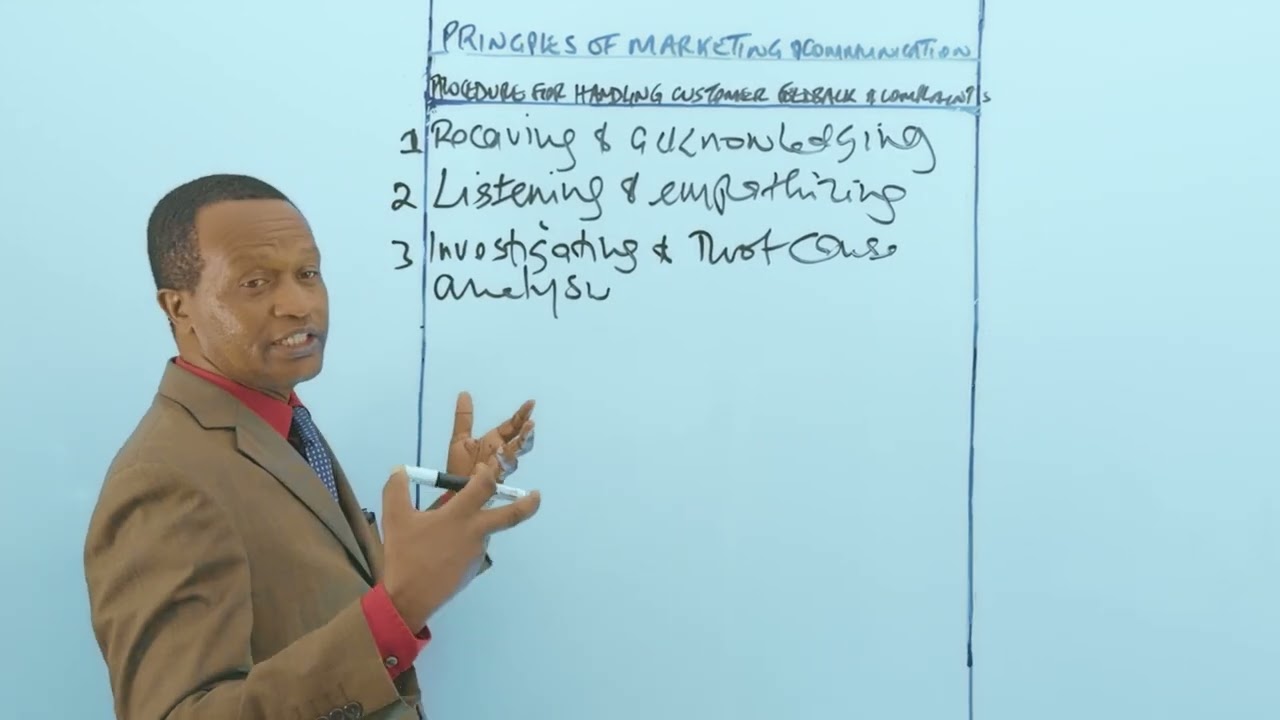 PRINCIPLES OF MARKETING & COMMUNICATION
PROCEDURE FOR HANDLING CUSTOMER FEEDBACK & COMPLAINTS
1 Receiving & acknowledging
2 Listening & empathizing
3 Investigating & root cause
analysis